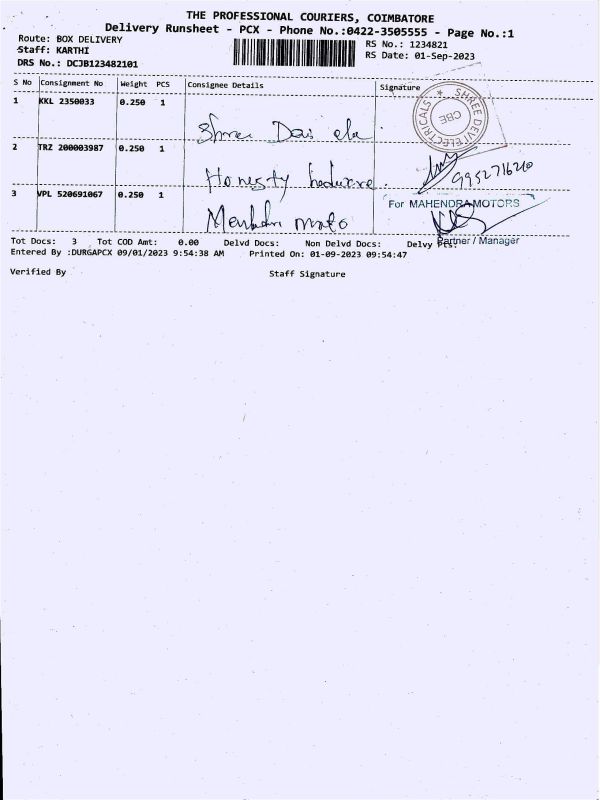 THE PROFESSIONAL COURIERS, COIMBATORE
Delivery Runsheet - PCX - Phone No.:0422-3505555 - Page No.:1
Route: BOX DELIVERY
RS No.: 1234821
Staff: KARTHI
RS Date: 01-Sep-2023
DRS No.: DCJB123482101
S No Consignment No Weight PCS Consignee Details Signature
1 KKL 2350033 0.250 1
Shree Devi ele
SHREE DEVI ELECTRICALS ★ CBE
2 TRZ 200003987 0.250 1
Honesty
9952716210
3 VPL 520691067 0.250 1
For MAHENDRA MOTORS
Partner / Manager
Tot Docs: 3 Tot COD Amt: 0.00 Delvd Docs: Non Delvd Docs: Delvy Pts:
Entered By :DURGAPCX 09/01/2023 9:54:38 AM Printed On: 01-09-2023 09:54:47
Verified By Staff Signature